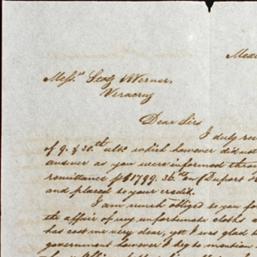 Mexi
Mess.rs Leog Werner,
Veracruz
Dear Sirs
I duly rec
of 9. & 30.th ulto which however did not
answer as you were informed throu
remittance of $1789.36.cs on Dupont &
and placed to your credit.
I am much obliged to you for
the affair of my unfortunate cloths
has cost me very dear, yet I was glad to
government however I beg to mention